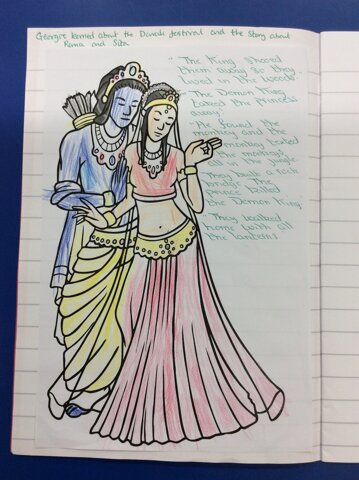 George learned about the Diwali festival and the story about
Rama and Sita
"The King shooed
them away so they
lived in the woods"
"The Demon King
taked the princess
away"
"He found the
monkey and the
monkey called
the monkeys
in the jungle
They built a rock
bridge The
prince killed
the Demon King
"They walked
home with all
the lanterns